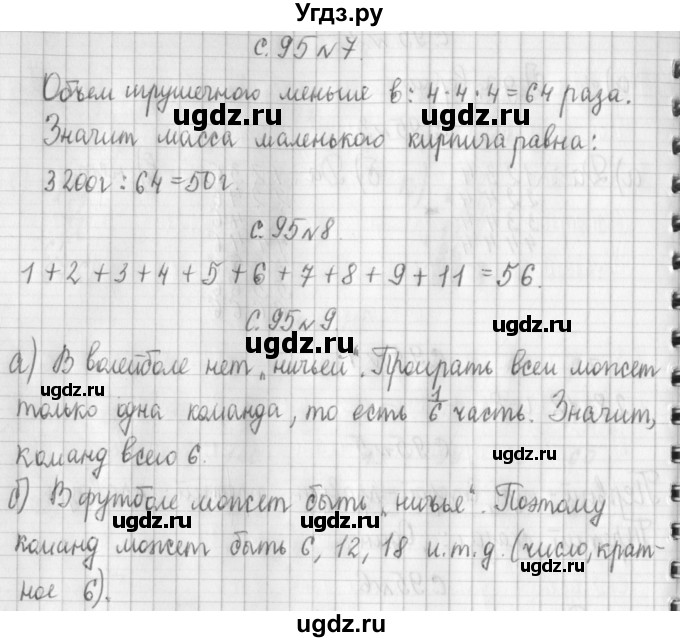 Угдз.ру
с. 95 №7.
Объем игрушечного меньше в: 4·4·4=64 раза.
ugdz.ru ugdz.ru
Значит масса маленького кирпича равна:
3200г : 64 = 50г.
ugdz.ru
с. 95 №8.
ugdz.ru ugdz.ru
1 + 2 + 3 + 4 + 5 + 6 + 7 + 8 + 9 + 11 = 56.
с. 95 №9.
ugdz.ru ugdz.ru
а) В волейболе нет „ничьей“. Проирать всем может
только одна команда, то есть 1/6 часть. Значит,
ugdz.ru
команд всего 6.
б) В футболе может быть „ничья“. Поэтому
ugdz.ru ugdz.ru
команд может быть 6, 12, 18 и.т.д. (число, крат-
ugdz.ru
ное 6).
ugdz.ru ugdz.ru